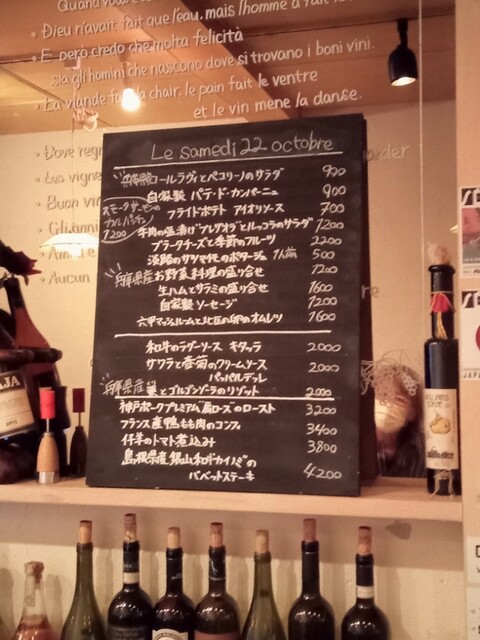 Quand vous
• Dieu n'avait fait que l'eau, mais l'homme a fait le
• E però credo che molta felicità
sia agli homini che nascono dove si trovano i boni vini.
• La viande fait la chair, le pain fait le ventre
et le vin mene la danse.
• Dove regn
• Les vigne
• Buon vin
• Gli annu
• Ai
• Aucun
Le samedi 22 octobre
兵庫県 ロールラヴィとペコリーノのサラダ 900
自家製 パテ・ド・カンパーニュ 900
スモークサーモンのカルパッチョ 1200
フライドポテト アイオリソース 700
牛肉の塩漬け"ブレザオラ"とルッコラのサラダ 1200
ブラータチーズと季節のフルーツ 2200
淡路のサツマイモのポタージュ 1人前 500
兵庫県産 お野菜料理の盛り合せ 1200
生ハムとサラミの盛り合せ 1600
自家製 ソーセージ 1200
六甲マッシュルームと北坂の卵のオムレツ 1600
和牛のラグーソース キタッラ 2000
サワラと春菊のクリームソース 2000
パッパルデッレ
兵庫県産 栗とゴルゴンゾーラのリゾット 2000
神戸ポークプレミアム"肩ロース"のロースト 3200
フランス産鴨もも肉のコンフィ 3400
仔羊のトマト煮込み 3800
島根県産 銀山和牛 カイノミの
バベットステーキ 4200